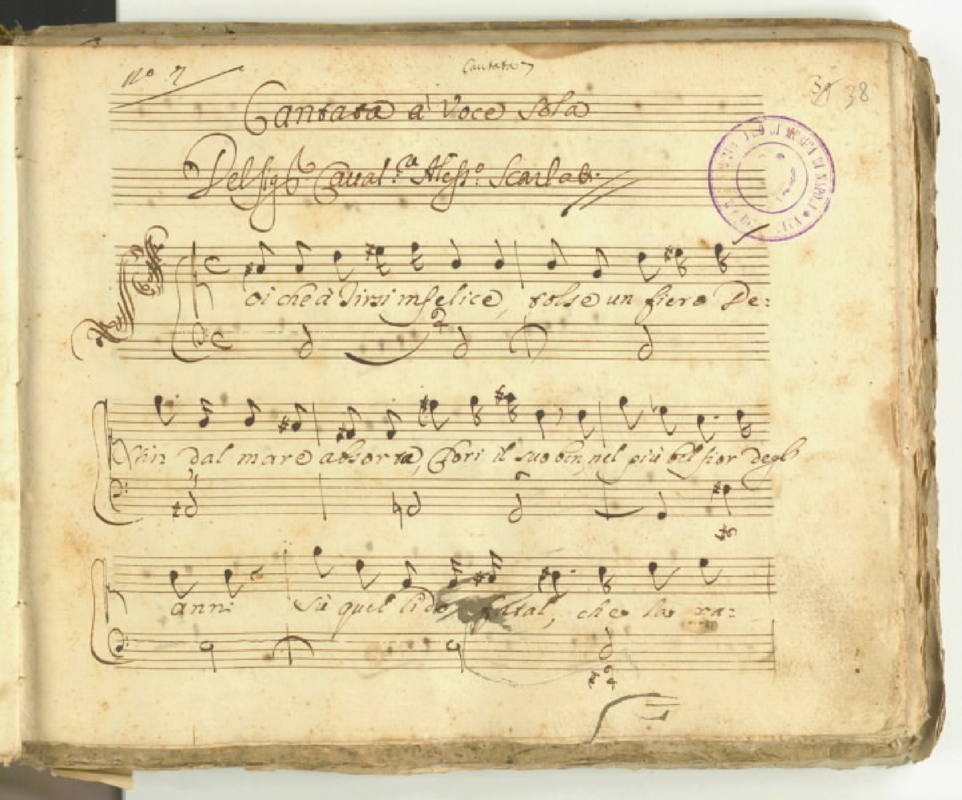 Cantata
No. 7
38
Cantata à Voce sola
Del Sigr. Caual.ra Aless.o Scarlatti
Poi che à Tirsi infelice, tolse un fiero De:
stin dal mare absorta, Clori il suo ben, nel più bel fior degl
anni sù quel lido fatal, che la ra: